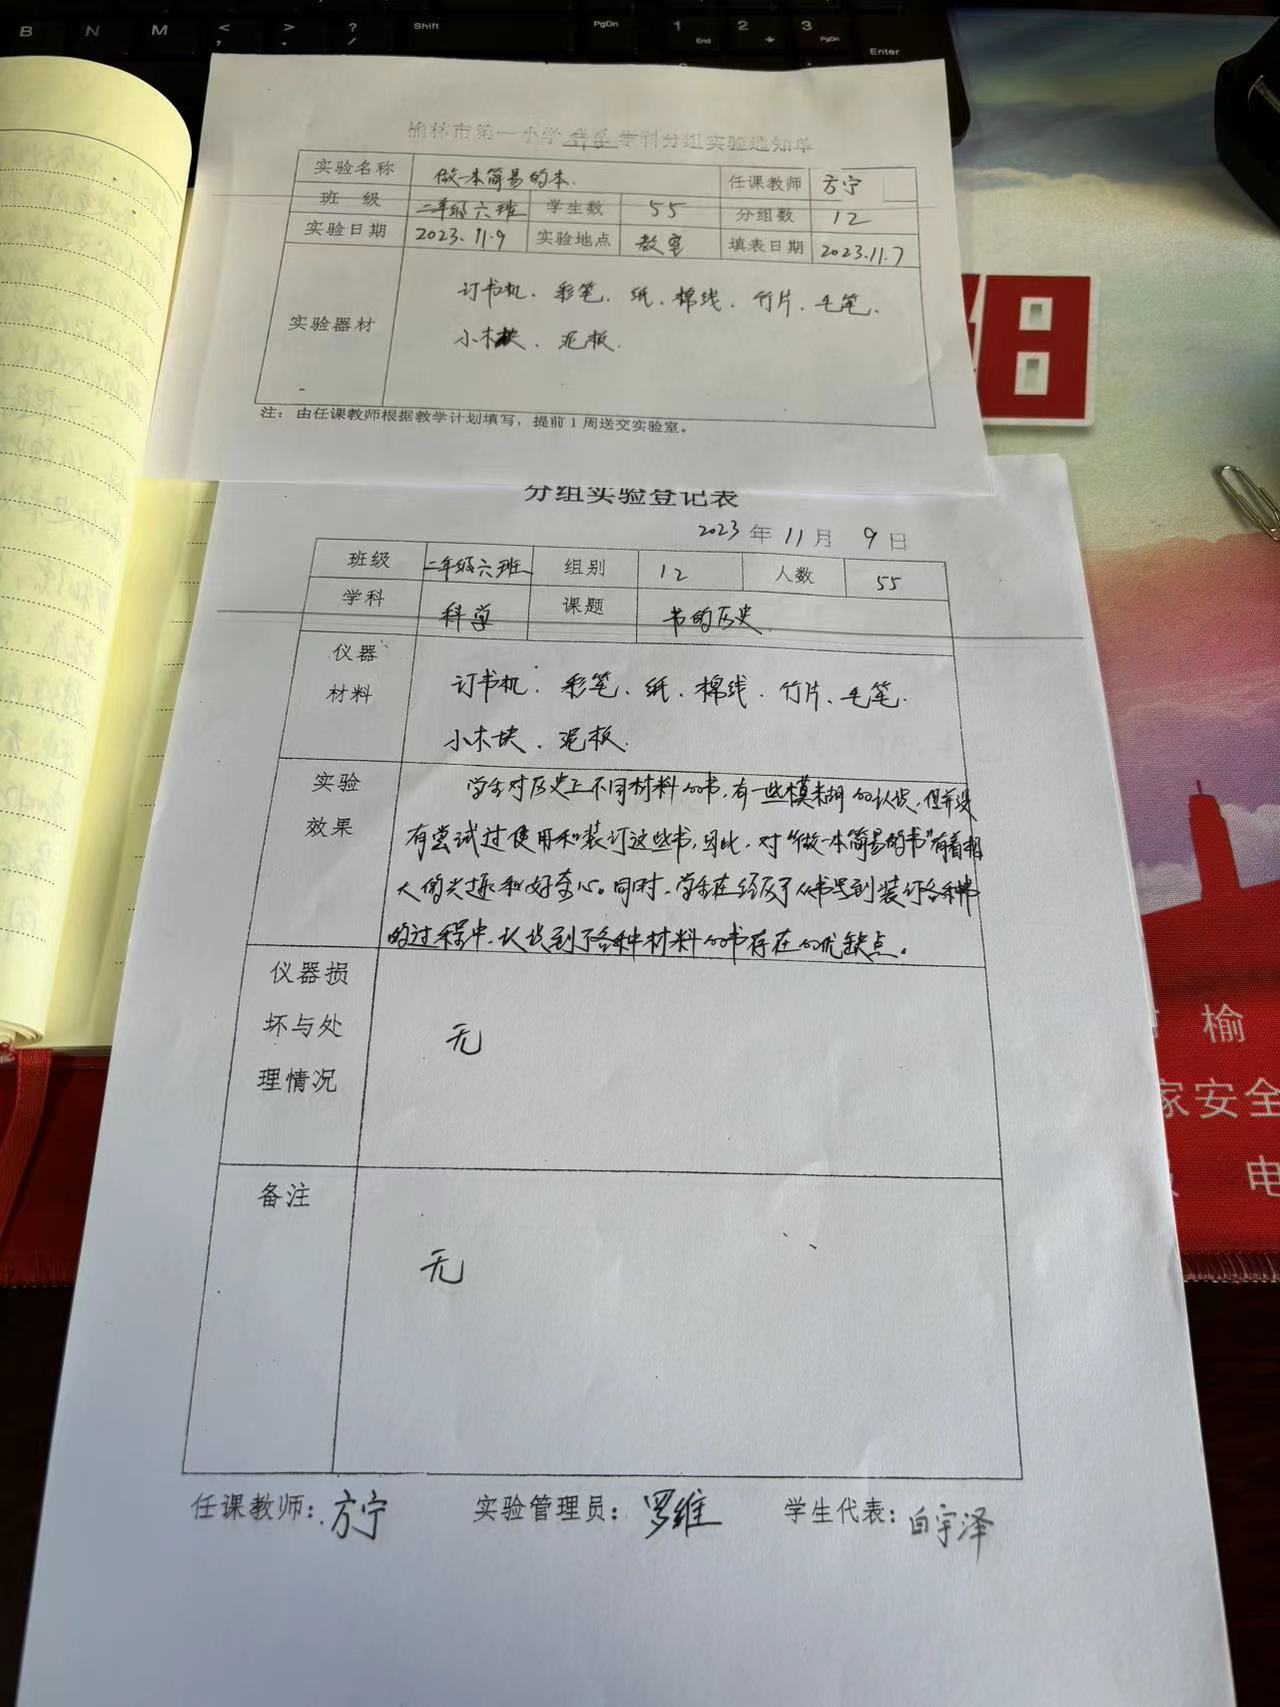 B N M < > ? Shift PgDn 1 2 3 PgDn
, . / End Enter
榆林市第一小学科学学科分组实验通知单
实验名称 做一本简易的本. 任课教师 方宁
班 级 二年级六班 学生数 55 分组数 12
实验日期 2023.11.9 实验地点 教室 填表日期 2023.11.7
实验器材 订书机、彩笔、纸、棉线、竹片、毛笔、
小木块、泥板.
注：由任课教师根据教学计划填写，提前1周送交实验室。
分组实验登记表
2023 年 11 月 9 日
班级 二年级六班 组别 12 人数 55
学科 科学 课题 书的历史
仪器
材料
订书机、彩笔、纸、棉线、竹片、毛笔.
小木块、泥板.
实验
效果
学生对历史上不同材料的书,有一些模糊的认识,但并没
有尝试过使用和装订这些书,因此,对"做一本简易的书"有着极
大的兴趣和好奇心。同时,学生在经历了从书写到装订各种书
的过程中,认识到了各种材料的书存在的优缺点。
仪器损
坏与处
理情况
无
备注
无
任课教师：方宁 实验管理员：罗维 学生代表：白宇泽
榆
家安全
电